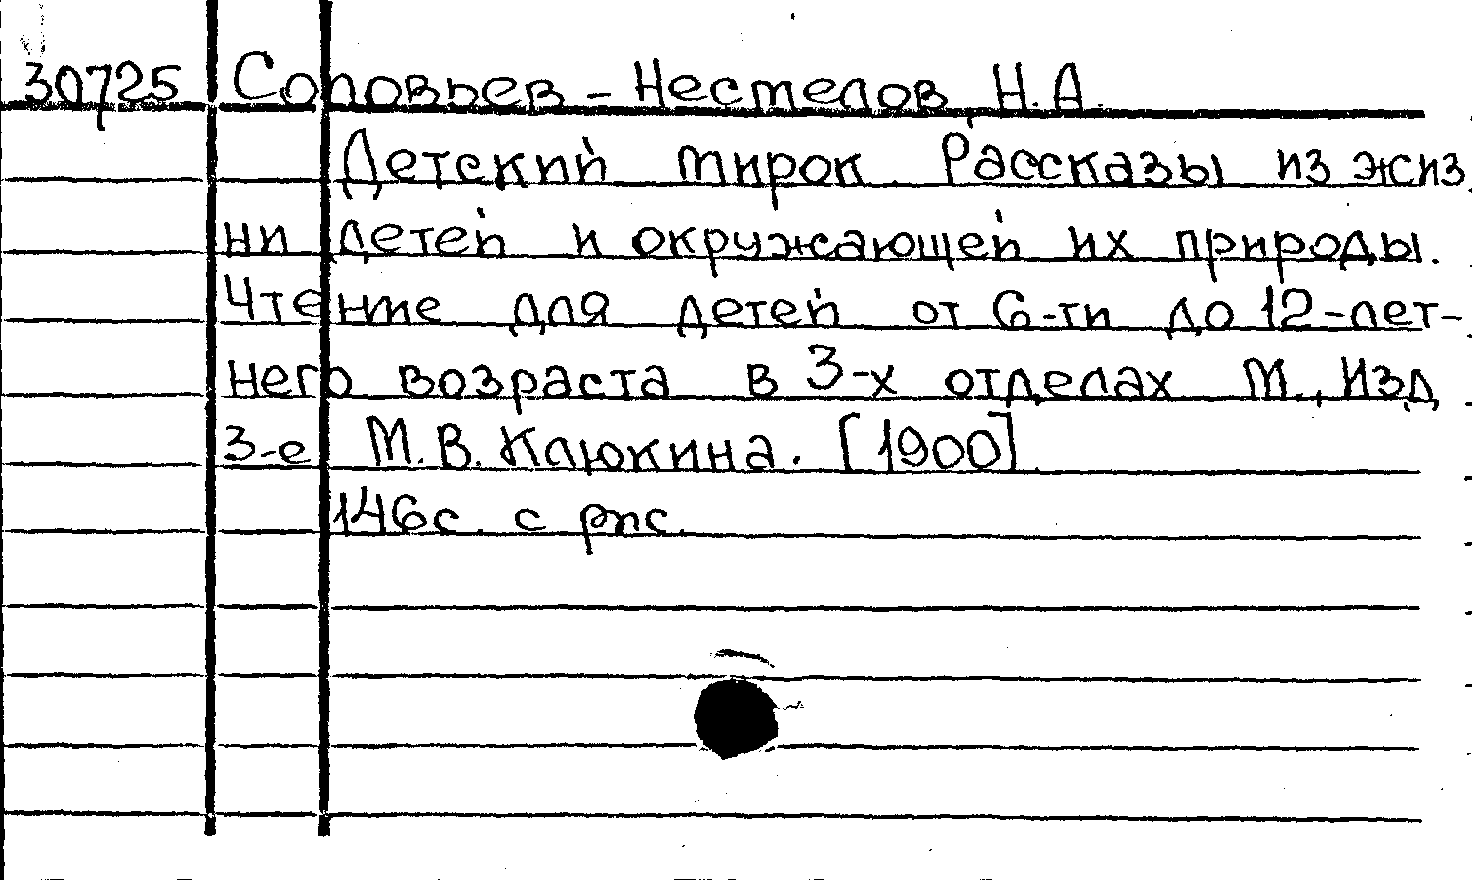 30725 Соловьев - Нестелов, Н.А.
Детский мирок. Рассказы из жиз
ни детей и окружающей их природы.
Чтение для детей от 6-ти до 12-лет-
него возраста в 3-х отделах М., Изд
3-е М.В. Клюкина. [1900]
146с. с рис.